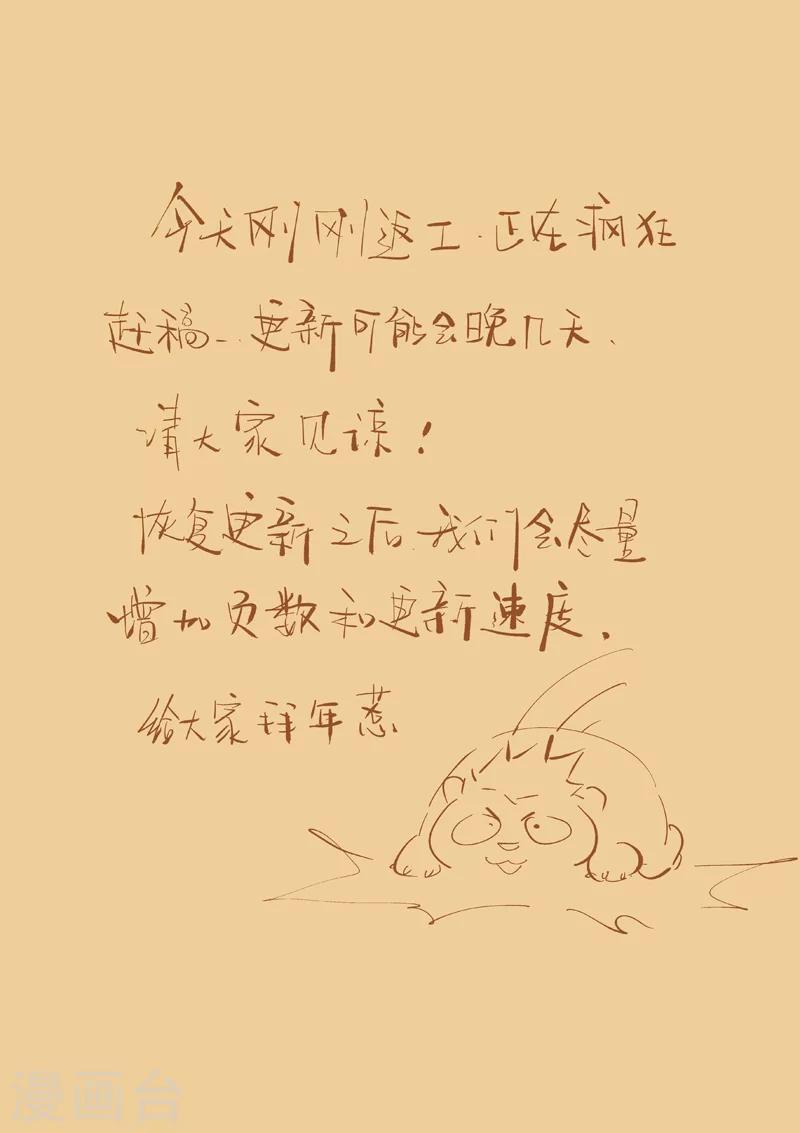 今天刚刚返工.正在疯狂
赶稿...更新可能会晚几天、
请大家见谅！
恢复更新之后.我们会尽量
增加页数和更新速度.
给大家拜年惹
漫画台